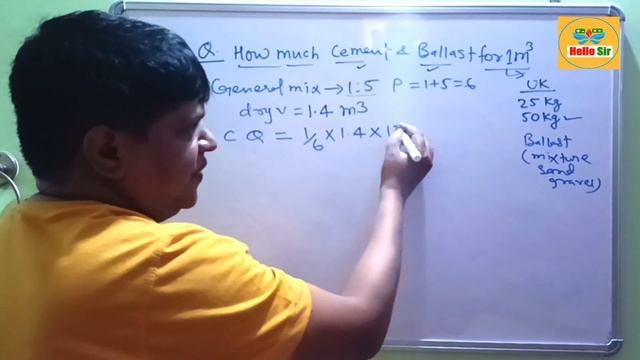 Q. How much Cement & Ballast for 1m³
General mix → 1:5 P = 1+5 = 6
dry v = 1.4 m3
C Q = 1/6 × 1.4 × 1
UK
25 Kg
50 Kg
Ballast
(mixture
sand
gravel)
Hello Sir